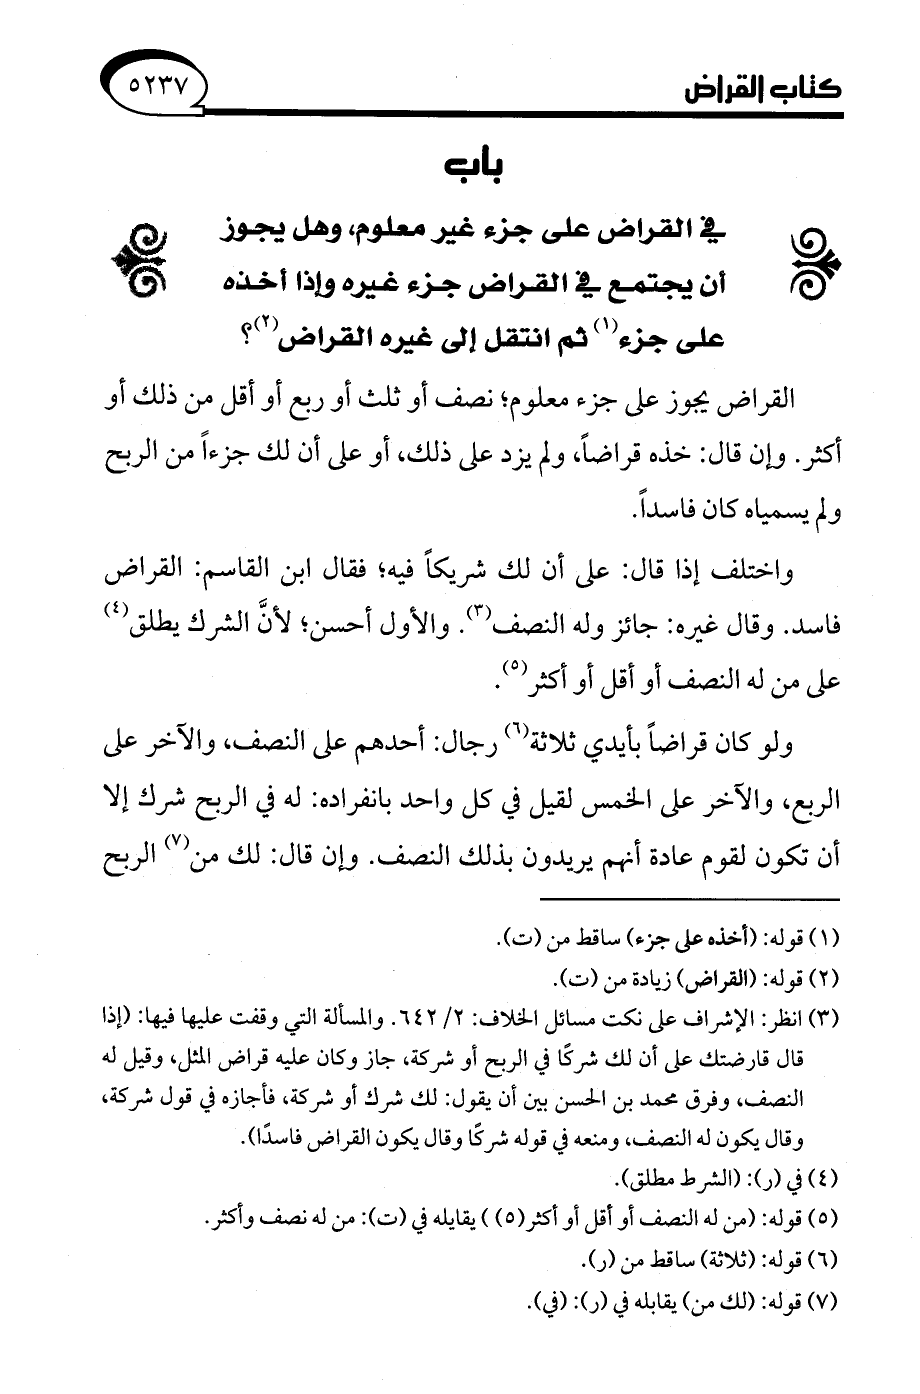 كتاب القراض
٥٢٣٧
باب
في القراض على جزء غير معلوم، وهل يجوز
أن يجتمع في القراض جزء غيره وإذا أخذه
على جزء(١) ثم انتقل إلى غيره القراض(٢)؟
القراض يجوز على جزء معلوم؛ نصف أو ثلث أو ربع أو أقل من ذلك أو
أكثر. وإن قال: خذه قراضاً، ولم يزد على ذلك، أو على أن لك جزءاً من الربح
ولم يسمياه كان فاسداً.
واختلف إذا قال: على أن لك شريكاً فيه؛ فقال ابن القاسم: القراض
فاسد. وقال غيره: جائز وله النصف(٣). والأول أحسن؛ لأنَّ الشرك يطلق(٤)
على من له النصف أو أقل أو أكثر(٥).
ولو كان قراضاً بأيدي ثلاثة(٦) رجال: أحدهم على النصف، والآخر على
الربع، والآخر على الخمس لقيل في كل واحد بانفراده: له في الربح شرك إلا
أن تكون لقوم عادة أنهم يريدون بذلك النصف. وإن قال: لك من(٧) الربح
(١) قوله: (أخذه على جزء) ساقط من (ت).
(٢) قوله: (القراض) زيادة من (ت).
(٣) انظر: الإشراف على نكت مسائل الخلاف: ٢/ ٦٤٢. والمسألة التي وقفت عليها فيها: (إذا
قال قارضتك على أن لك شركًا في الربح أو شركة، جاز وكان عليه قراض المثل، وقيل له
النصف، وفرق محمد بن الحسن بين أن يقول: لك شرك أو شركة، فأجازه في قول شركة،
وقال يكون له النصف، ومنعه في قوله شركًا وقال يكون القراض فاسدًا).
(٤) في (ر): (الشرط مطلق).
(٥) قوله: (من له النصف أو أقل أو أكثر(٥) ) يقابله في (ت): من له نصف وأكثر.
(٦) قوله: (ثلاثة) ساقط من (ر).
(٧) قوله: (لك من) يقابله في (ر): (في).